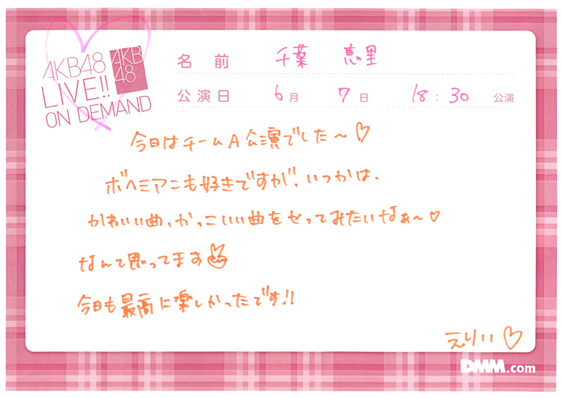 AKB48
LIVE!!
ON DEMAND
AKB
48
名前 千葉 恵里
公演日 6月 7日 18:30 公演
今日はチームA公演でした〜♡
ボヘミアンも好きですが、いつかは、
かわいい曲、かっこいい曲をやってみたいなぁ〜♡
なんて思ってます
今日も最高に楽しかったです!!
えりい♡
DMM.com